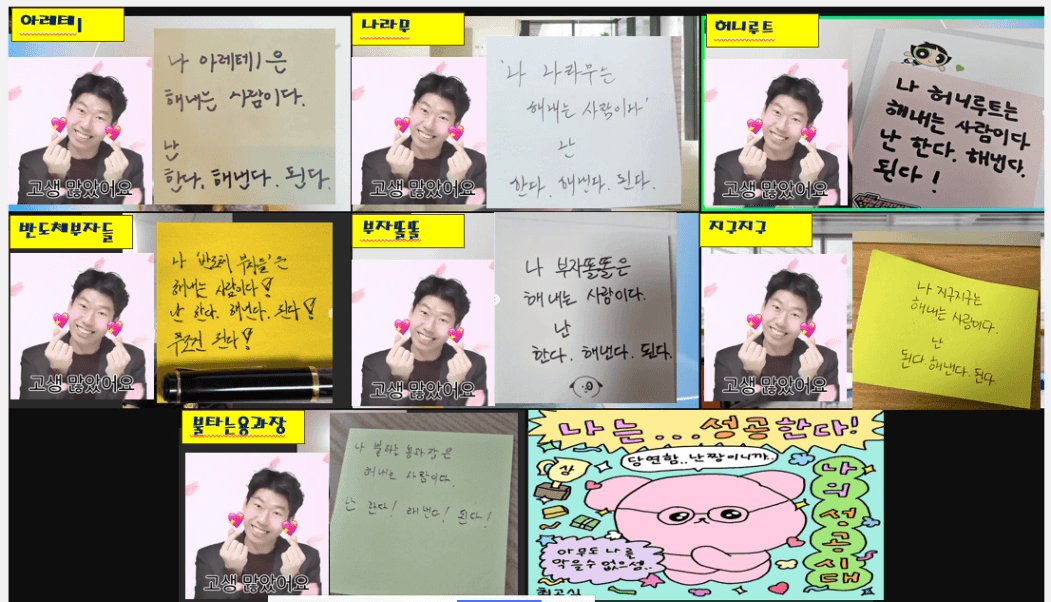 아레테
나 아레테은
해내는 사람이다.
난
한다. 해낸다. 된다.
고생 많았어요
나라무
'나 나라무는
해내는 사람이다'
난
한다. 해낸다. 된다.
고생 많았어요
허니루트
나 허니루트는
해내는 사람이다
난 한다. 해낸다.
된다!
고생 많았어요
반도체부자들
나 '반도체 부자들'은
해내는 사람이다!
난 한다. 해낸다. 된다!
무조건 된다!
고생 많았어요
부자똘똘
나 부자똘똘은
해내는 사람이다.
난
한다. 해낸다. 된다.
고생 많았어요
지구지구
나 지구지구는
해내는 사람이다.
난
된다. 해낸다. 된다
고생 많았어요
불타는용과장
나 불타는용과장은
해내는 사람이다.
난 한다! 해낸다! 된다!
고생 많았어요
나는...성공한다!
당연함..난짱이니까..
상
나의성공시대
아무도 나를
막을수 없으셈..